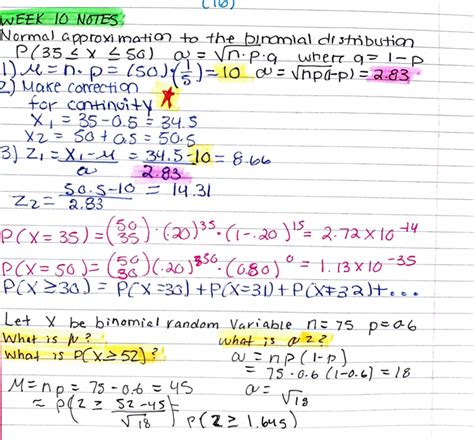 (16)
WEEK 10 NOTES:
Normal approximation to the binomial distribution
P(35 ≤ X ≤ 50) σ = √n·p·q where q = 1-p
1) μ = n·p = (50)(1/5) = 10 σ = √np(1-p) = 2.83
2) Make correction
for continuity
X1 = 35 - 0.5 = 34.5
X2 = 50 + 0.5 = 50.5
3) Z1 = X1-μ/σ = 34.5-10/2.83 = 8.66
Z2 = 50.5-10/2.83 = 14.31
P(X = 35) = (50 35)·(20)^35·(1-.20)^15 = 2.72 X 10^-14
P(X = 50) = (50 50)(.20)^50·(0.80)^0 = 1.13 X 10^-35
P(X ≥ 30) = P(X=30) + P(X=31) + P(X=32) + ...
Let X be binomial random variable n = 75 p = 0.6
What is μ? What is σ2?
What is P(X ≥ 52)? σ = np(1-p)
= 75·0.6(1-0.6) = 18
M = np = 75·0.6 = 45 σ = √18
≈ P(Z ≥ 52-45/√18) = P(Z ≥ 1.645)